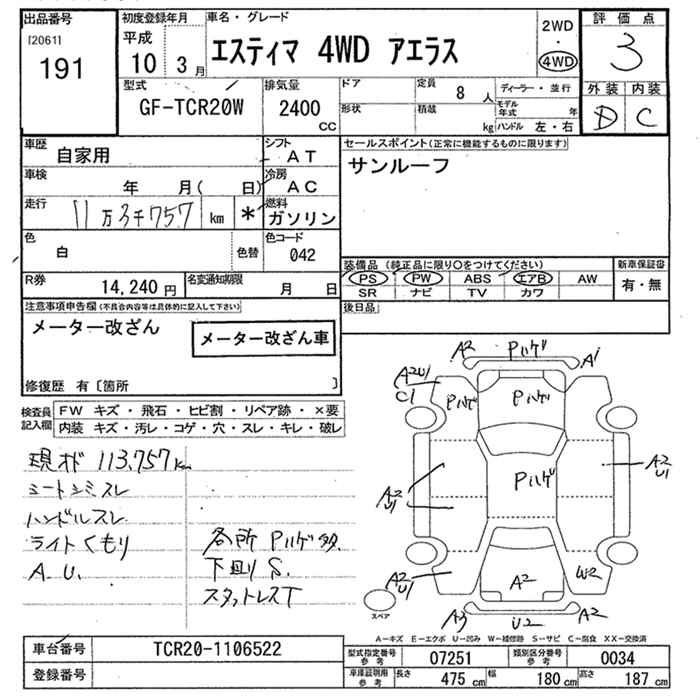 出品番号
[2061]
191
初度登録年月
平成
10 3月
車名・グレード
エスティマ 4WD アエラス
2WD
4WD
評価点
3
外装 内装
D C
型式
GF-TCR20W
排気量
2400
CC
ドア
形状
定員
8 人
積載
kg
ディーラー・並行
モデル年式 年
ハンドル 左・右
車歴
自家用
シフト
AT
車検
年 月( 日)
冷房
AC
走行
11万3千757 km *
燃料
ガソリン
色
白
色替
色コード
042
R券
14,240 円
名変通知期限
月 日
セールスポイント(正常に機能するものに限ります)
サンルーフ
装備品(純正品に限り○をつけてください)
PS PW ABS エアB AW
SR ナビ TV カワ
新車保証書
有・無
後日品
注意事項申告欄(不具合内容等は具体的に記入して下さい)
メーター改ざん
メーター改ざん車
修復歴 有〔箇所 〕
検査員記入欄
FW キズ・飛石・ヒビ割・リペア跡・×要
内装 キズ・汚レ・コゲ・穴・スレ・キレ・破レ
現状 113,757km
シートシミスレ
ハンドルスレ
ライトくもり
A.U.
各所Pハゲ多
下回りS.
スタットレスT
A2 Pハゲ A1
A2U1
C1
Pハゲ
Pハゲ
Pハゲ
A2
U1
A2
U1
A2
U1
A2
W2
A3 U2 A2
スペア
A-キズ E-エクボ U-凹み W-補修跡 S-サビ C-腐食 XX-交換済
車台番号
TCR20-1106522
登録番号
型式指定番号 参考
07251
類別区分番号 参考
0034
車庫証明用 参考
長さ 475 cm
幅 180 cm
高さ 187 cm